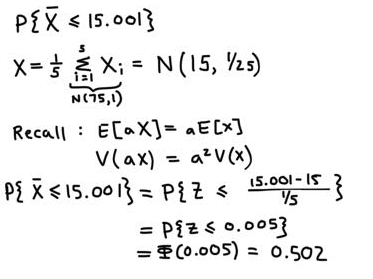 P{X̄ ≤ 15.001}
X = 1/5 Σ_{i=1}^{5} X_i = N(15, 1/25)
N(75,1)
Recall : E[aX] = aE[x]
V(ax) = a²V(x)
P{X̄ ≤ 15.001} = P{Z ≤ (15.001-15)/(1/5)}
= P{Z ≤ 0.005}
= Φ(0.005) = 0.502